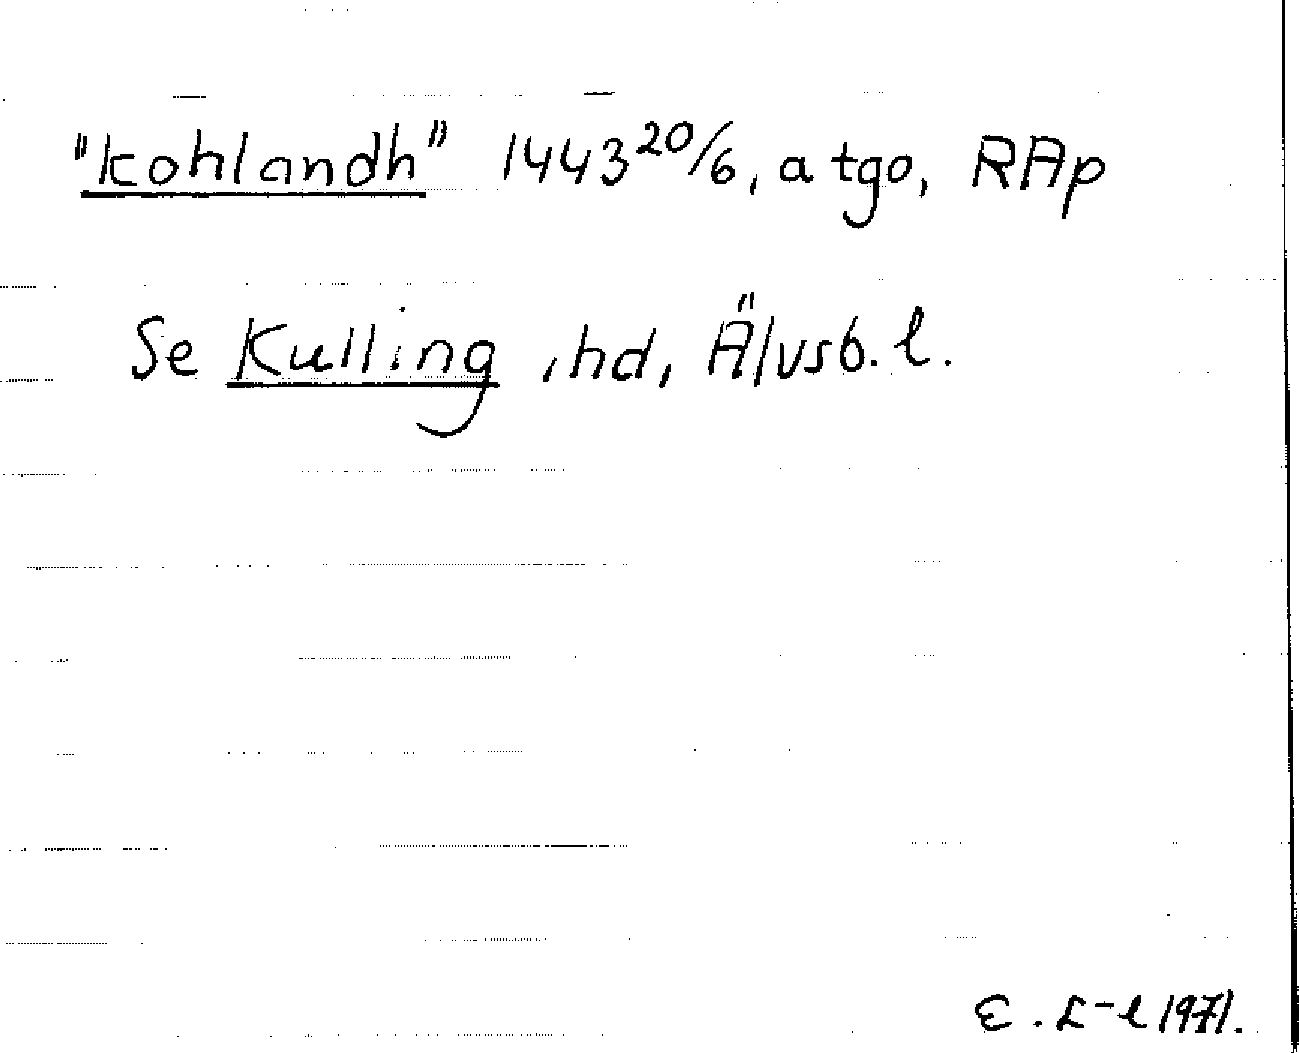 "kohlandh" 1443 20/6, a tgo, RAp
Se Kulling, hd, Älvsb. l.
E. L-l 1971.